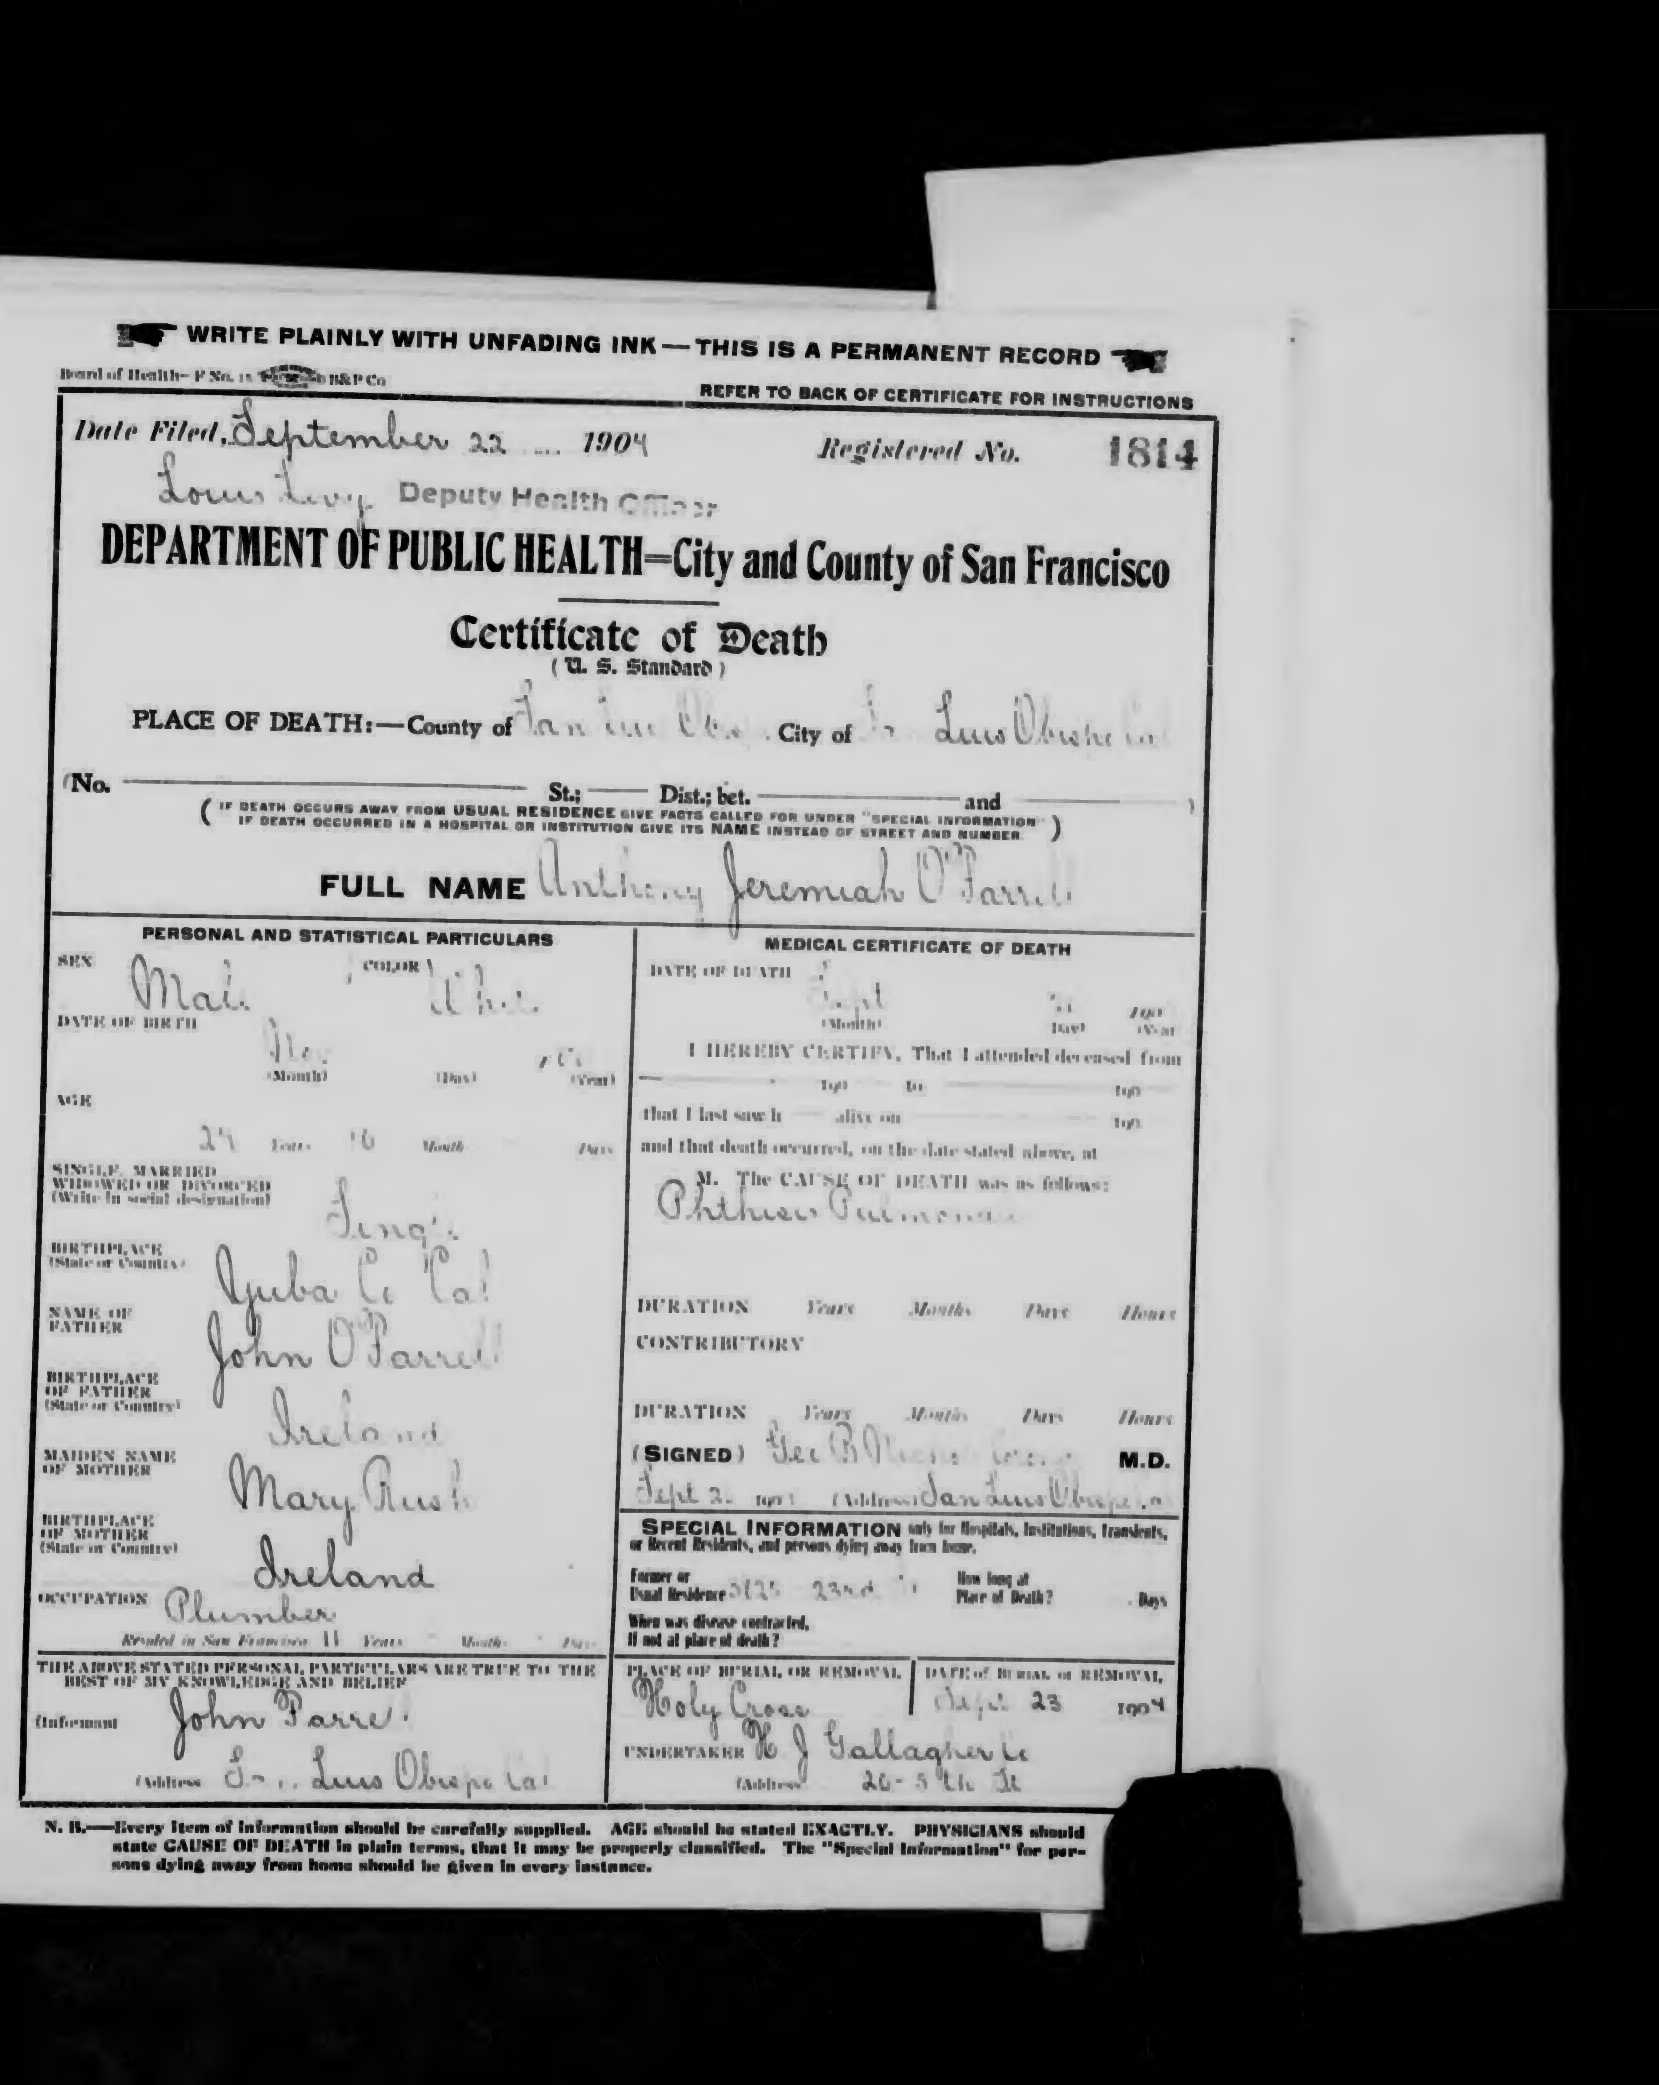 WRITE PLAINLY WITH UNFADING INK — THIS IS A PERMANENT RECORD
Board of Health—F No. 15 B&P Co
REFER TO BACK OF CERTIFICATE FOR INSTRUCTIONS
Date Filed, September 22 1904 Registered No. 1814
Louis Levy Deputy Health Officer
DEPARTMENT OF PUBLIC HEALTH=City and County of San Francisco
Certificate of Death
(U. S. Standard)
PLACE OF DEATH:—County of San Luis City of Luis Obispo Cal
(No. St.; Dist.; bet. and )
(IF DEATH OCCURS AWAY FROM USUAL RESIDENCE GIVE FACTS CALLED FOR UNDER "SPECIAL INFORMATION"
IF DEATH OCCURRED IN A HOSPITAL OR INSTITUTION GIVE ITS NAME INSTEAD OF STREET AND NUMBER.)
FULL NAME Anthony Jeremiah O'Farrell
PERSONAL AND STATISTICAL PARTICULARS
SEX Male COLOR White
DATE OF BIRTH
Nov
(Month) (Day) (Year)
AGE
24 Years 10 Months Days
SINGLE, MARRIED
WIDOWED OR DIVORCED
(Write in social designation)
Single
BIRTHPLACE
(State or Country)
Yuba Co Cal
NAME OF
FATHER
John O'Farrell
BIRTHPLACE
OF FATHER
(State or Country)
Ireland
MAIDEN NAME
OF MOTHER
Mary Rush
BIRTHPLACE
OF MOTHER
(State or Country)
Ireland
OCCUPATION Plumber
Resided in San Francisco 11 Years Months Days
THE ABOVE STATED PERSONAL PARTICULARS ARE TRUE TO THE
BEST OF MY KNOWLEDGE AND BELIEF
(Informant John Farrell
(Address San Luis Obispo Cal
MEDICAL CERTIFICATE OF DEATH
DATE OF DEATH
Sept 190
(Month) (Day) (Year
I HEREBY CERTIFY, That I attended deceased from
190 to 190
that I last saw h alive on 190
and that death occurred, on the date stated above, at
M. The CAUSE OF DEATH was as follows:
Phthisis Pulmonalis
DURATION Years Months Days Hours
CONTRIBUTORY
DURATION Years Months Days Hours
(SIGNED) Geo B M.D.
Sept 190 (Address) San Luis Obispo Cal
SPECIAL INFORMATION only for Hospitals, Institutions, Transients,
or Recent Residents, and persons dying away from home.
Former or
Usual Residence 23rd St
How long at
Place of Death? Days
When was disease contracted,
If not at place of death?
PLACE OF BURIAL OR REMOVAL
Holy Cross
DATE of BURIAL or REMOVAL
Sept 23 1904
UNDERTAKER H J Gallagher Co
(Address 20 - 5th St
N. B.—Every item of information should be carefully supplied. AGE should be stated EXACTLY. PHYSICIANS should
state CAUSE OF DEATH in plain terms, that it may be properly classified. The "Special Information" for per-
sons dying away from home should be given in every instance.